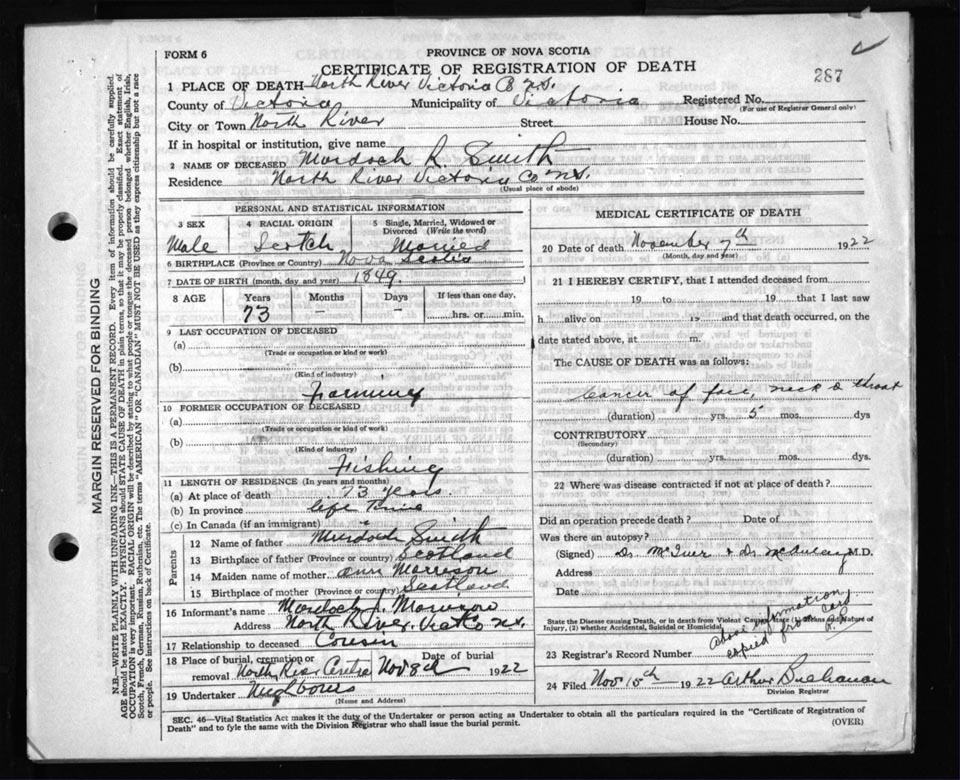 FORM 6
PROVINCE OF NOVA SCOTIA
CERTIFICATE OF REGISTRATION OF DEATH
287
1 PLACE OF DEATH North River Victoria Co N.S.
County of Victoria Municipality of Victoria Registered No.
(For use of Registrar General only)
City or Town North River Street House No.
If in hospital or institution, give name
2 NAME OF DECEASED Murdoch R. Smith
Residence North River Victoria Co N.S.
(Usual place of abode)
MARGIN RESERVED FOR BINDING
N.B.—WRITE PLAINLY WITH UNFADING INK—THIS IS A PERMANENT RECORD. Every item of information should be carefully supplied.
AGE should be stated EXACTLY. PHYSICIANS should STATE CAUSE OF DEATH in plain terms, so that it may be properly classified. Exact statement of
OCCUPATION is very important. RACIAL ORIGIN will be described by stating to what people or tongue the deceased person belonged whether English, Irish,
Scotch, French, German, Russian, Ruthenian, etc. The terms "AMERICAN" OR "CANADIAN" MUST NOT BE USED as they express citizenship but not a race
or people. See instructions on back of Certificate.
PERSONAL AND STATISTICAL INFORMATION
3 SEX
Male
4 RACIAL ORIGIN
Scotch
5 Single, Married, Widowed or
Divorced (Write the word)
Married
6 BIRTHPLACE (Province or Country) Nova Scotia
7 DATE OF BIRTH (month, day and year) 1849.
8 AGE Years Months Days If less than one day,
73 – – hrs. or min.
9 LAST OCCUPATION OF DECEASED
(a)
(Trade or occupation or kind or work)
(b)
(Kind of industry)
Farming
10 FORMER OCCUPATION OF DECEASED
(a)
(Trade or occupation or kind of work)
(b)
(Kind of industry)
Fishing
11 LENGTH OF RESIDENCE (In years and months)
(a) At place of death 73 years.
(b) In province Life Time
(c) In Canada (if an immigrant) "
Parents
12 Name of father Murdoch Smith
13 Birthplace of father (Province or country) Scotland
14 Maiden name of mother Ann Morrison
15 Birthplace of mother (Province or country) Scotland
16 Informant's name Murdoch J. Morrison
Address North River Vict Co N.S.
17 Relationship to deceased Cousin
18 Place of burial, cremation or Date of burial
removal North River Centre Nov 8th 1922
19 Undertaker Neighbours
(Name and Address)
MEDICAL CERTIFICATE OF DEATH
20 Date of death November 7th 1922
(Month, day and year)
21 I HEREBY CERTIFY, that I attended deceased from
19 to 19 that I last saw
h alive on 19 and that death occurred, on the
date stated above, at m.
The CAUSE OF DEATH was as follows:
Cancer of face, neck & throat
(duration) yrs. 5 mos. dys
CONTRIBUTORY
(Secondary)
(duration) yrs. mos. dys.
22 Where was disease contracted if not at place of death?
Did an operation precede death? Date of
Was there an autopsy?
(Signed) Dr. McIver & Dr. McAulay M.D.
Address
Date
State the Disease causing Death, or in death from Violent Causes State (1) Means and Nature of
Injury, (2) whether Accidental, Suicidal or Homicidal.
Above information
copied from card
23 Registrar's Record Number
24 Filed Nov 15th 1922 Arthur Buchanan
Division Registrar
SEC. 46—Vital Statistics Act makes it the duty of the Undertaker or person acting as Undertaker to obtain all the particulars required in the "Certificate of Registration of
Death" and to fyle the same with the Division Registrar who shall issue the burial permit.
(OVER)